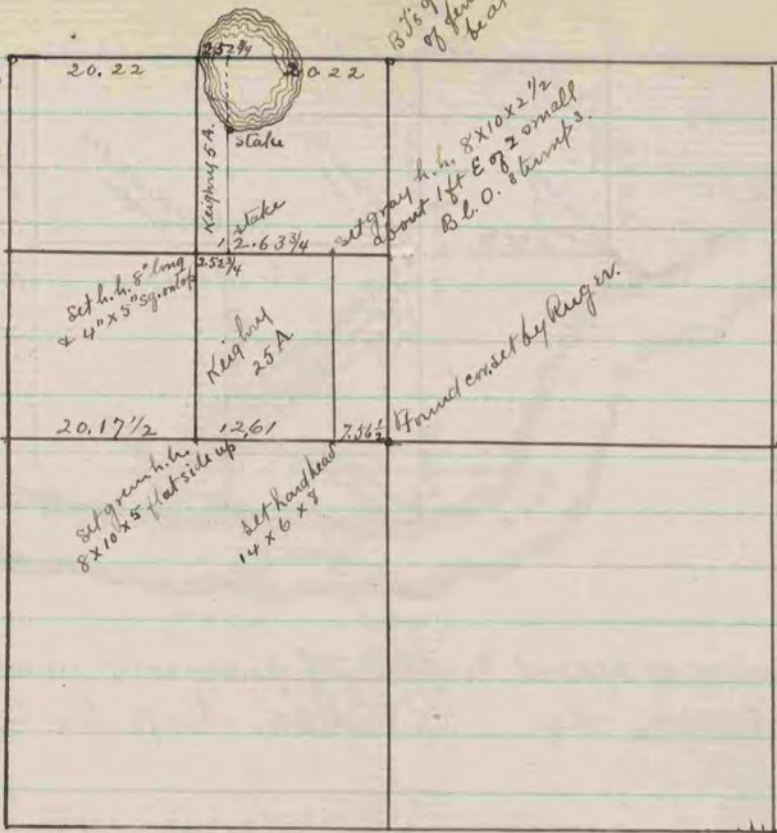 B Ts
of
be a
20.22
2.52 3/4
20.22
Keighry 5 A.
stake
stake
12.63 3/4
set gray h.h. 8 x 10 x 2 1/2
about 1 ft E of 2 small
B l. O. stumps.
set h.h. 8" long
& 4" x 5" sq. on top
2.52 3/4
Keighry
25 A
Found cor. set by Ruger.
20.17 1/2
12.61
7.56 1/2
set green h.h.
8 x 10 x 5 flat side up
set hardhead
14 x 6 x 8